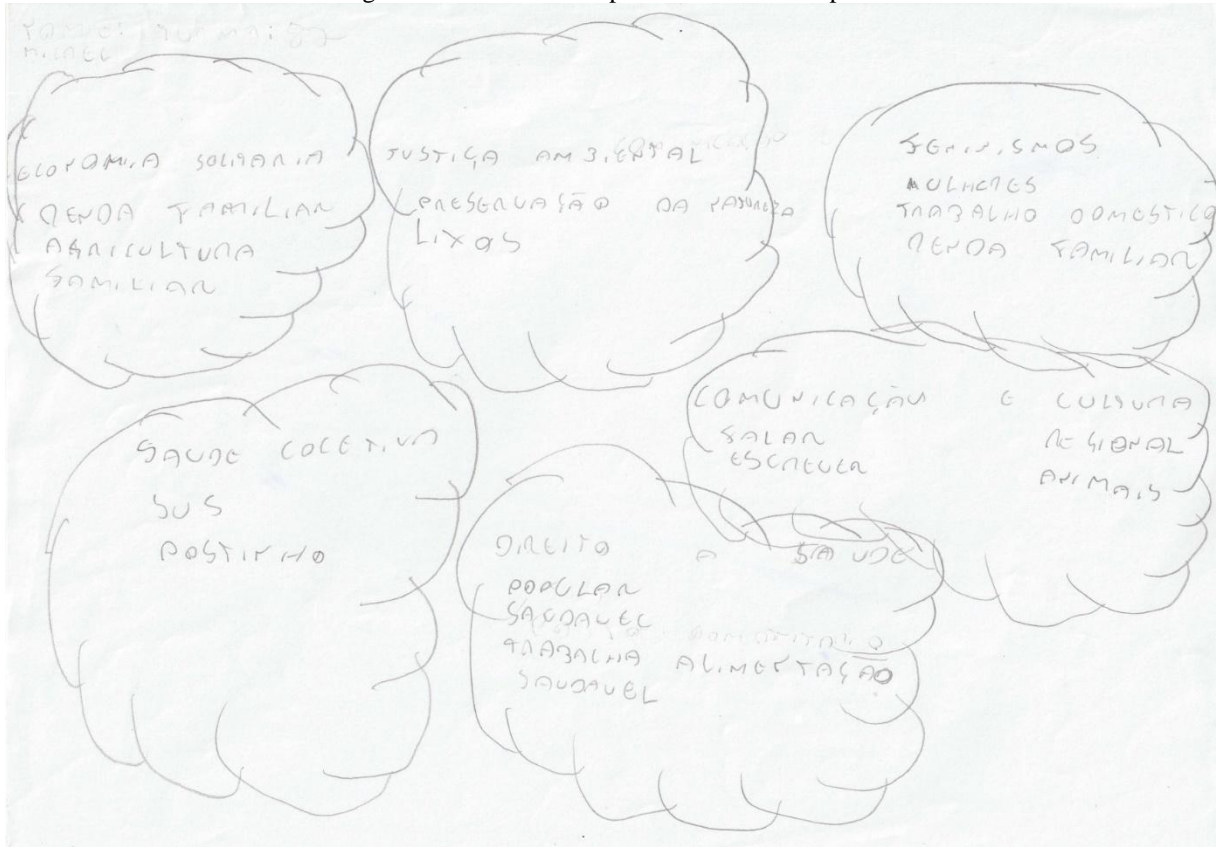 MICAEL
ECONOMIA SOLIDARIA
RENDA FAMILIAR
AGRICULTURA
FAMILIAR
JUSTIÇA AMBIENTAL
PRESERVAÇÃO DA NATUREZA
LIXOS
FEMINISMOS
MULHERES
TRABALHO DOMESTICO
RENDA FAMILIAR
SAUDE COLETIVA
SUS
POSTINHO
COMUNICAÇÃO E CULTURA
FALAR REGIONAL
ESCREVER ANIMAIS
DIREITO A SAUDE
POPULAR
SAUDAVEL
TRABALHA ALIMENTAÇÃO
SAUDAVEL